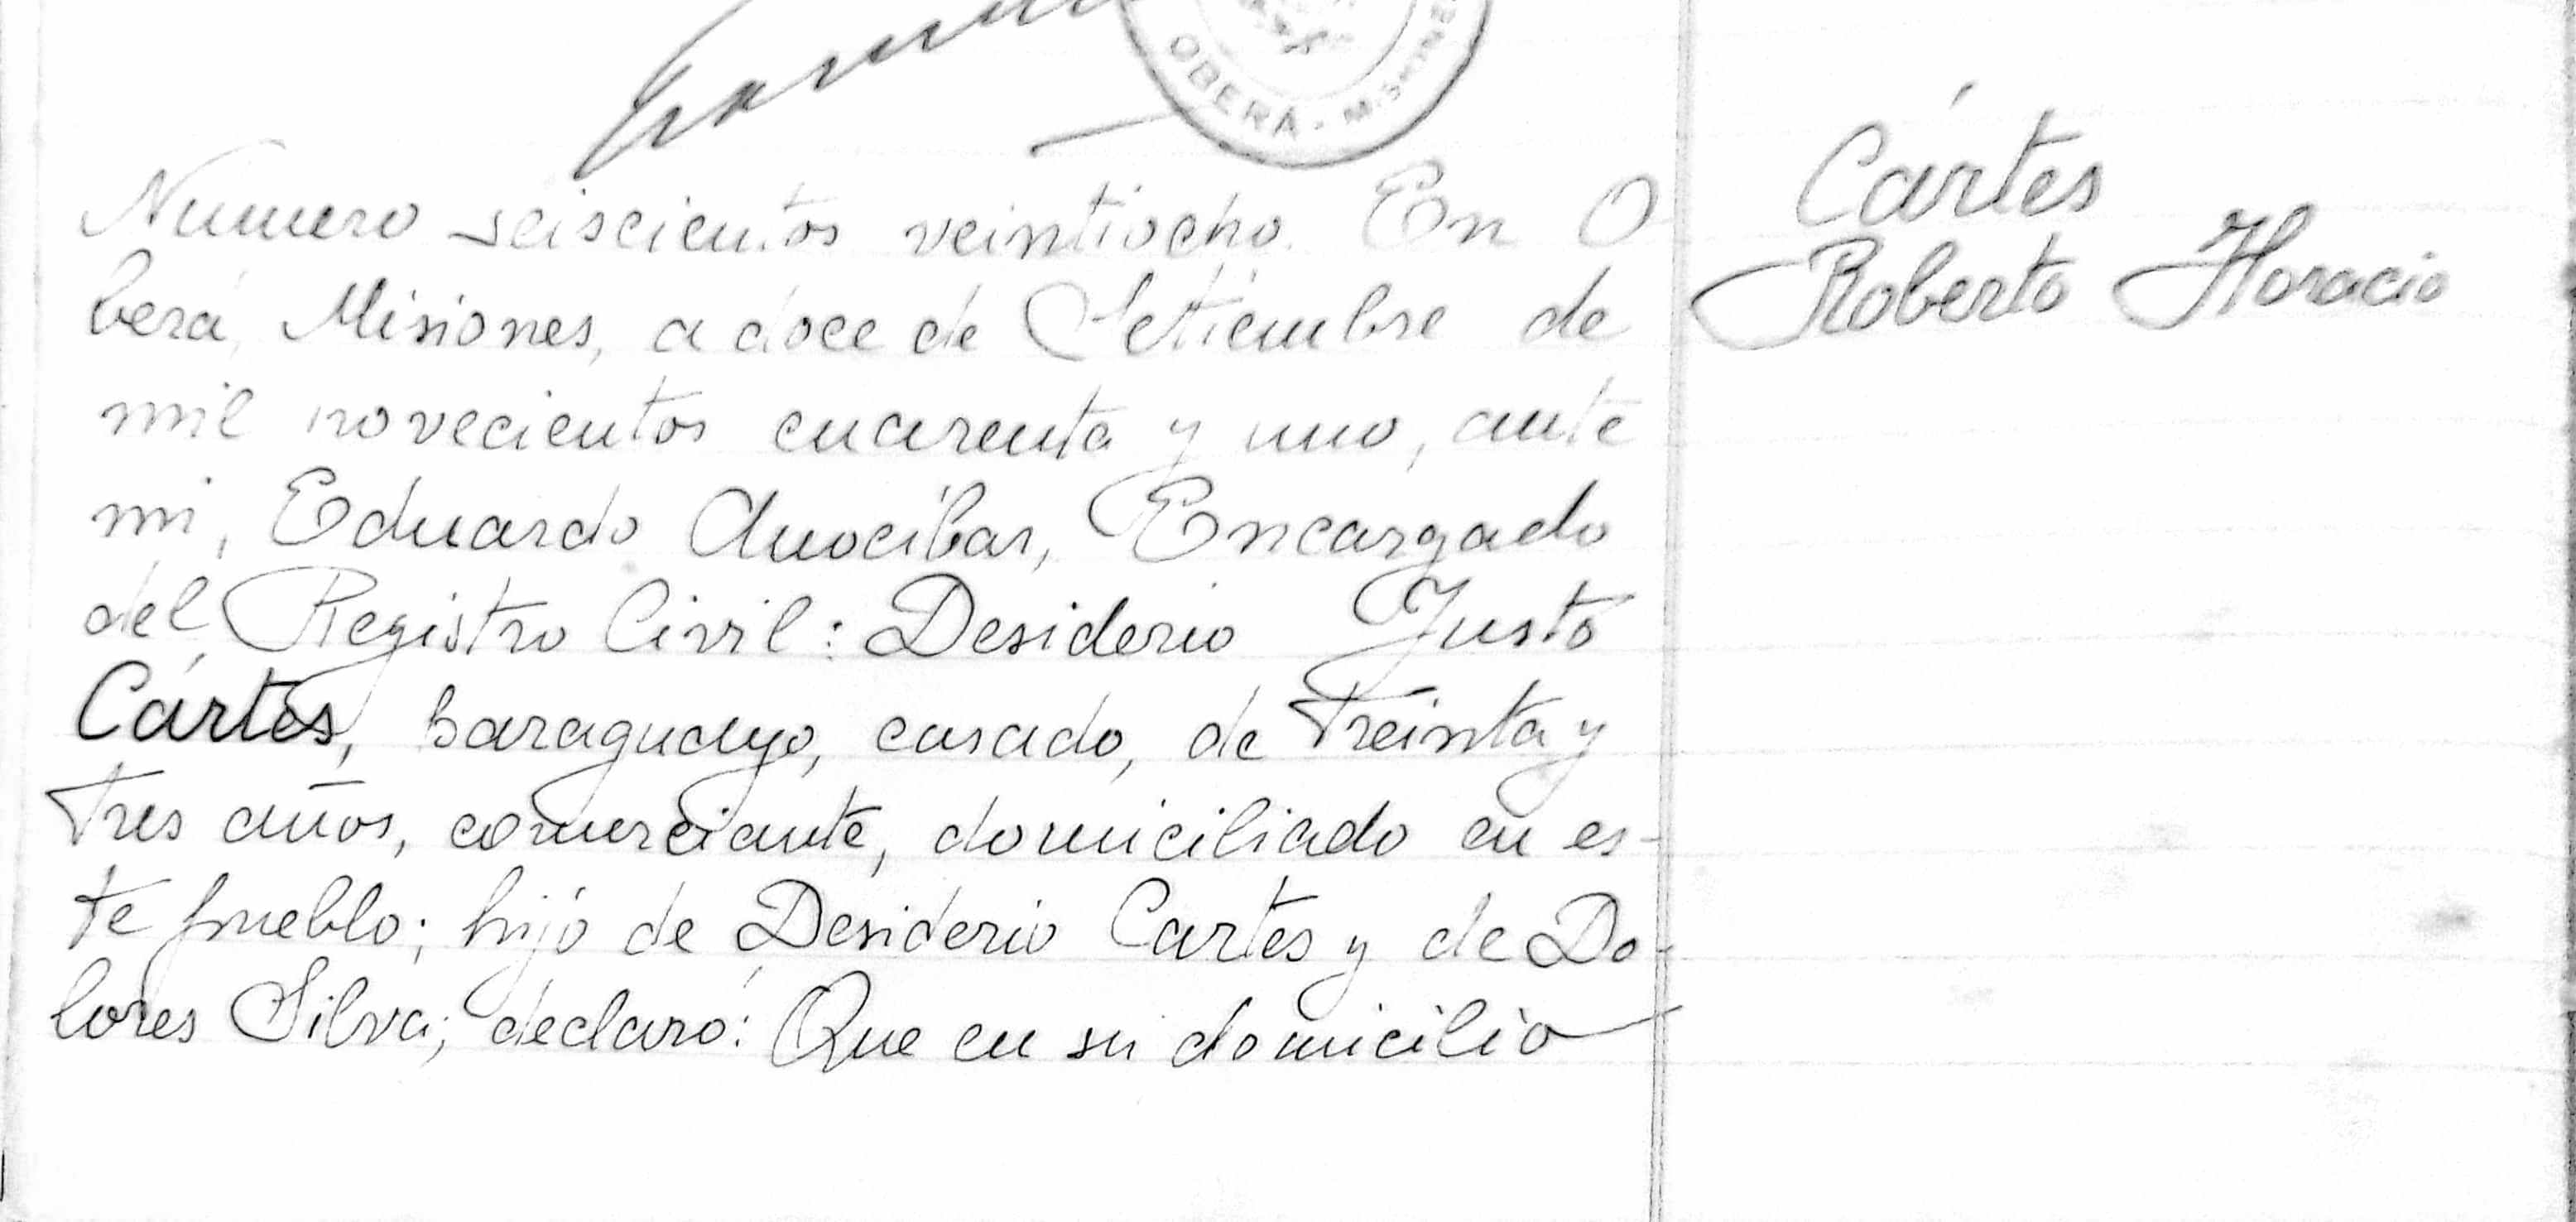 OBERÁ - MISIONES
Numero seiscientos veintiocho. En O
berá, Misiones, a doce de Setiembre de
mil novecientos cuarenta y uno, ante
mi, Eduardo Anocibar, Encargado
del Registro Civil: Desiderio Justo
Cártes, paraguayo, casado, de treinta y
tres años, comerciante, domiciliado en es-
te pueblo; hijo de Desiderio Cartes y de Do-
lores Silva; declaró: Que en su domicilio
Cártes
Roberto Horacio